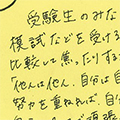 受験生のみな
模試などを受ける
比較して焦ったりする
「他人は他人、自分は自
努力を重ねれば、自